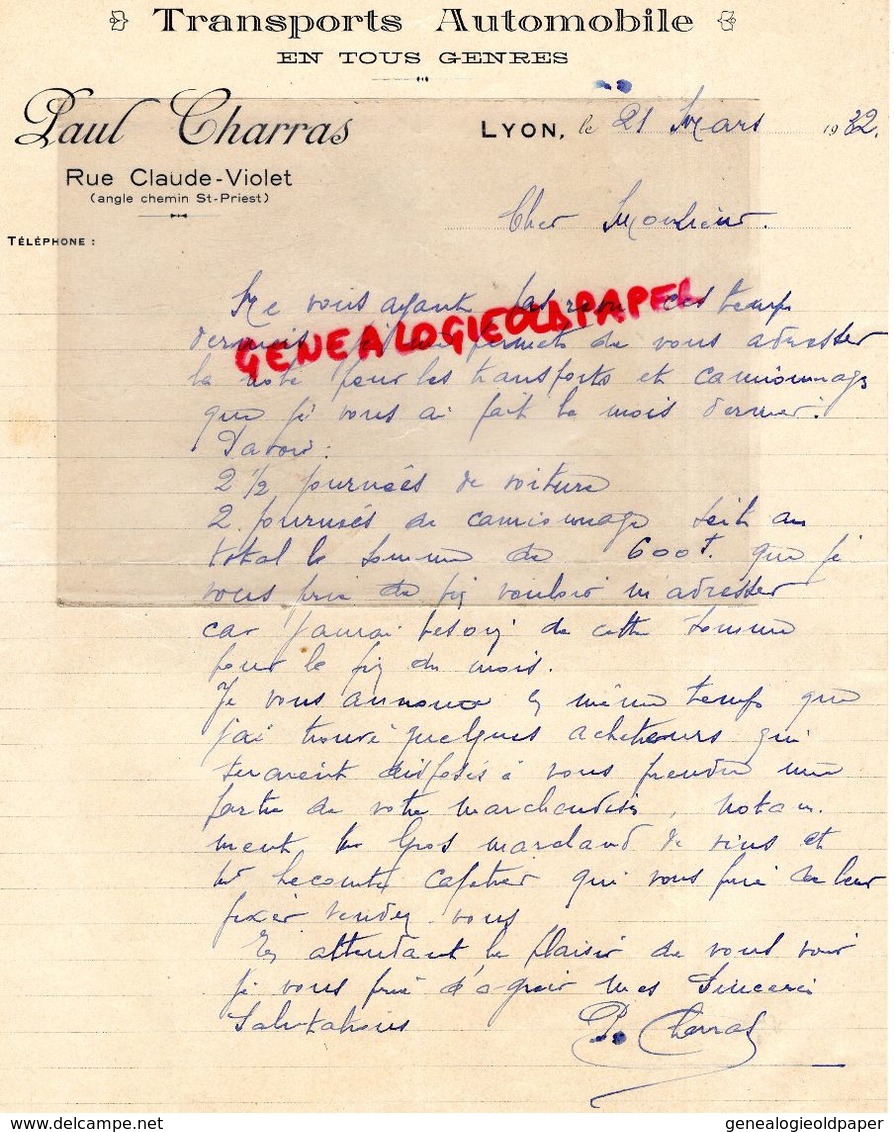 Transports Automobile
EN TOUS GENRES
Paul Charras
LYON, le 21 Mars 1932.
Rue Claude-Violet
(angle chemin St-Priest)
TÉLÉPHONE :
Cher Monsieur.
Ne vous ayant pas revu ces temps
derniers je me permets de vous adresser
la note pour les transports et camionnage
que je vous ai fait le mois dernier.
Savoir :
2 1/2 journées de voiture
2 journées de camionnage soit au
total la somme de 600f. que je
vous prie de bien vouloir m'adresser
car j'aurai besoin de cette somme
pour la fin du mois.
Je vous annonce en même temps que
j'ai trouvé quelques acheteurs qui
seraient disposés à vous prendre une
partie de votre marchandise, notam.
ment Mr Gros marchand de vins et
Mr Lecomte cafetier qui vous prie de leur
fixer rendez vous
En attendant le plaisir de vous voir
je vous prie d'agréer mes sincères
Salutations
P. Charras
GENEALOGIEOLDPAPEL
www.delcampe.net
genealogieoldpaper